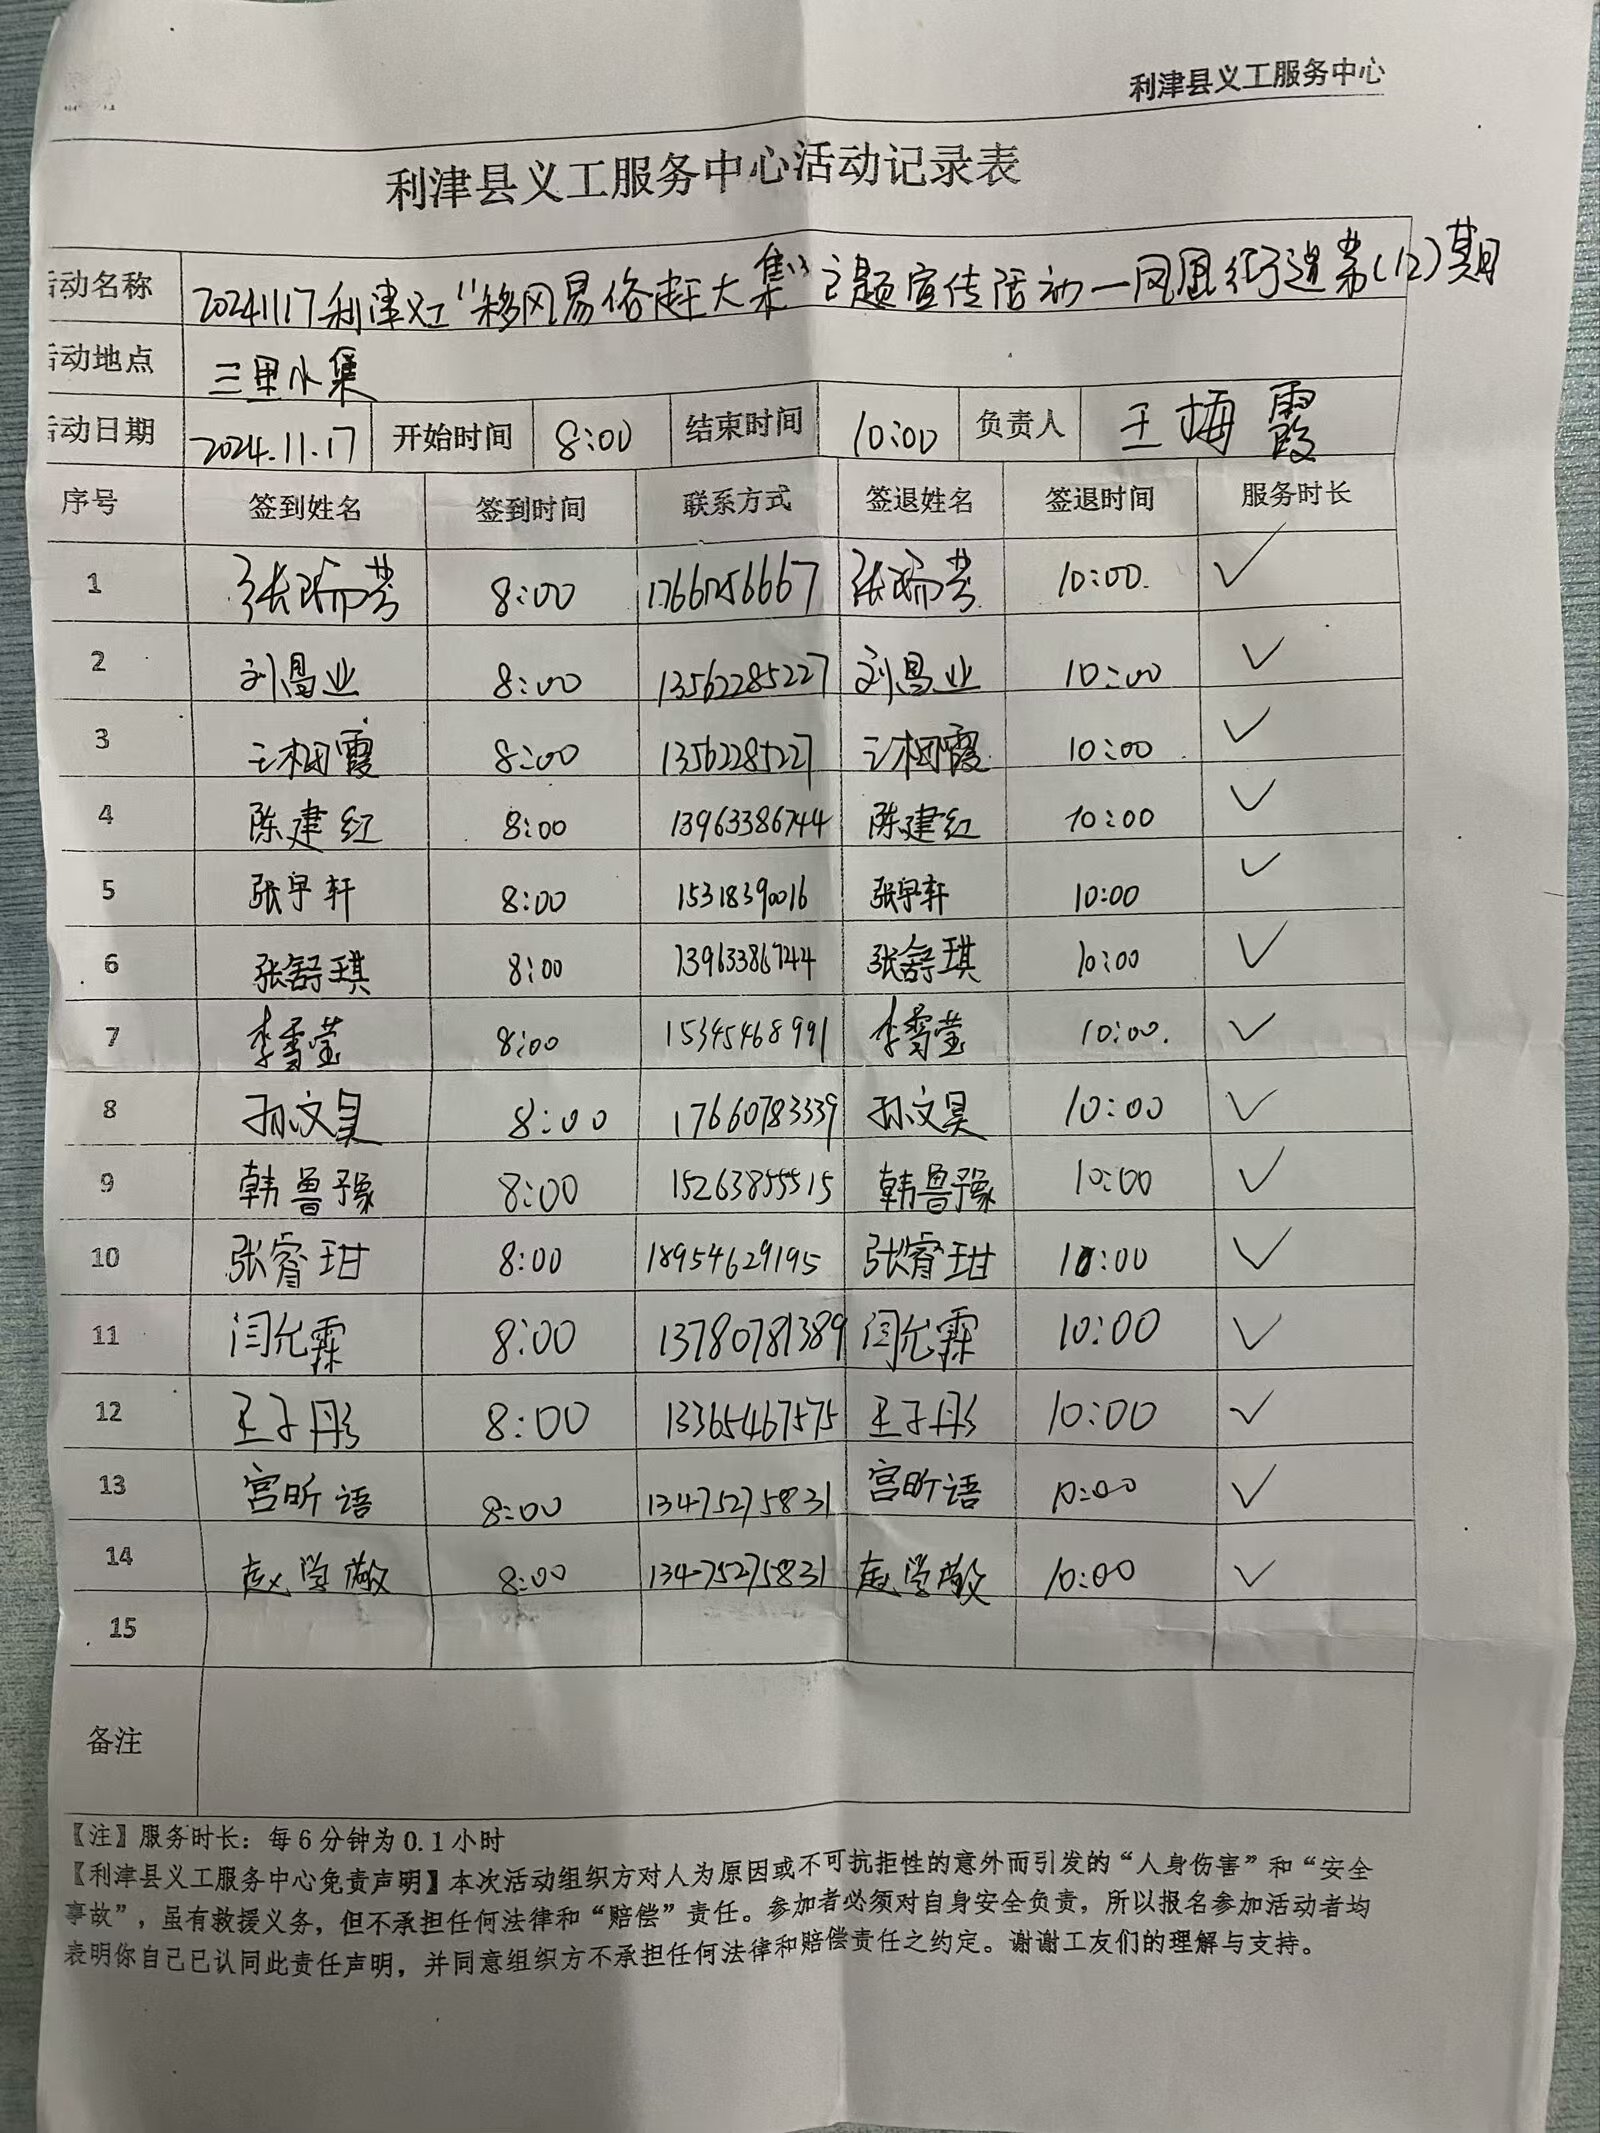 利津县义工服务中心
利津县义工服务中心活动记录表
活动名称 20241117利津义工“移风易俗赶大集”主题宣传活动—凤凰街道第(12)期
活动地点 三里水集
活动日期 2024.11.17 开始时间 8:00 结束时间 10:00 负责人 王梅霞
序号 签到姓名 签到时间 联系方式 签退姓名 签退时间 服务时长
1 张瑞芳 8:00 张瑞芳 10:00. ✓
2 刘昌业 8:00 13562285227 刘昌业 10:00 ✓
3 8:00 13562285227 10:00 ✓
4 陈建红 8:00 13963386744 陈建红 10:00 ✓
5 张宇轩 8:00 15318390016 张宇轩 10:00 ✓
6 张舒琪 8:00 13963386744 张舒琪 10:00 ✓
7 李雪莹 8:00 15345468991 李雪莹 10:00. ✓
8 孙文昊 8:00 17660783339 孙文昊 10:00 ✓
9 韩鲁豫 8:00 15263855515 韩鲁豫 10:00 ✓
10 张睿玵 8:00 18954629195 张睿玵 10:00 ✓
11 闫允霖 8:00 13780781389 闫允霖 10:00 ✓
12 王子彤 8:00 13365467575 王子彤 10:00 ✓
13 宫昕语 8:00 13475275831 宫昕语 10:00 ✓
14 赵学敏 8:00 13475275831 赵学敏 10:00 ✓
15
备注
【注】服务时长：每6分钟为0.1小时
【利津县义工服务中心免责声明】本次活动组织方对人为原因或不可抗拒性的意外而引发的“人身伤害”和“安全
事故”，虽有救援义务，但不承担任何法律和“赔偿”责任。参加者必须对自身安全负责，所以报名参加活动者均
表明你自己已认同此责任声明，并同意组织方不承担任何法律和赔偿责任之约定。谢谢工友们的理解与支持。